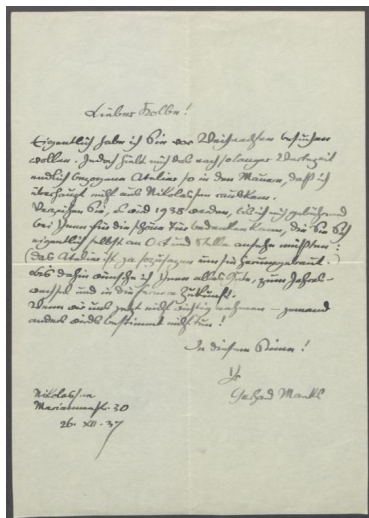 Lieber Kolbe!
Eigentlich habe ich Sie vor Weihnachten besuchen
wollen. Jedoch hielt mich das nach so langer Wartezeit
endlich bezogene Atelier so in den Mauern, daß ich
überhaupt nicht aus Nikolassee rauskam.
Verzeihen Sie, es wird 1938 werden, bis ich mich gebührend
bei Ihnen für die schöne bedanken kann, die Sie sich
eigentlich selbst an Ort und Stelle ansehn müßten:
(das Atelier ist ja sozusagen um sie herumgebaut.)
Bis dahin wünsche ich Ihnen alles Gute, zum Jahres-
wechsel und in die fernere Zukunft.
Wenn wir uns jetzt nicht wichtig nehmen – jemand
anders wirds bestimmt nicht tun!
In diesem Sinne!
Ihr
Gerhard Marcks
Nikolassee
Mariannenst. 30
26. XII. 37